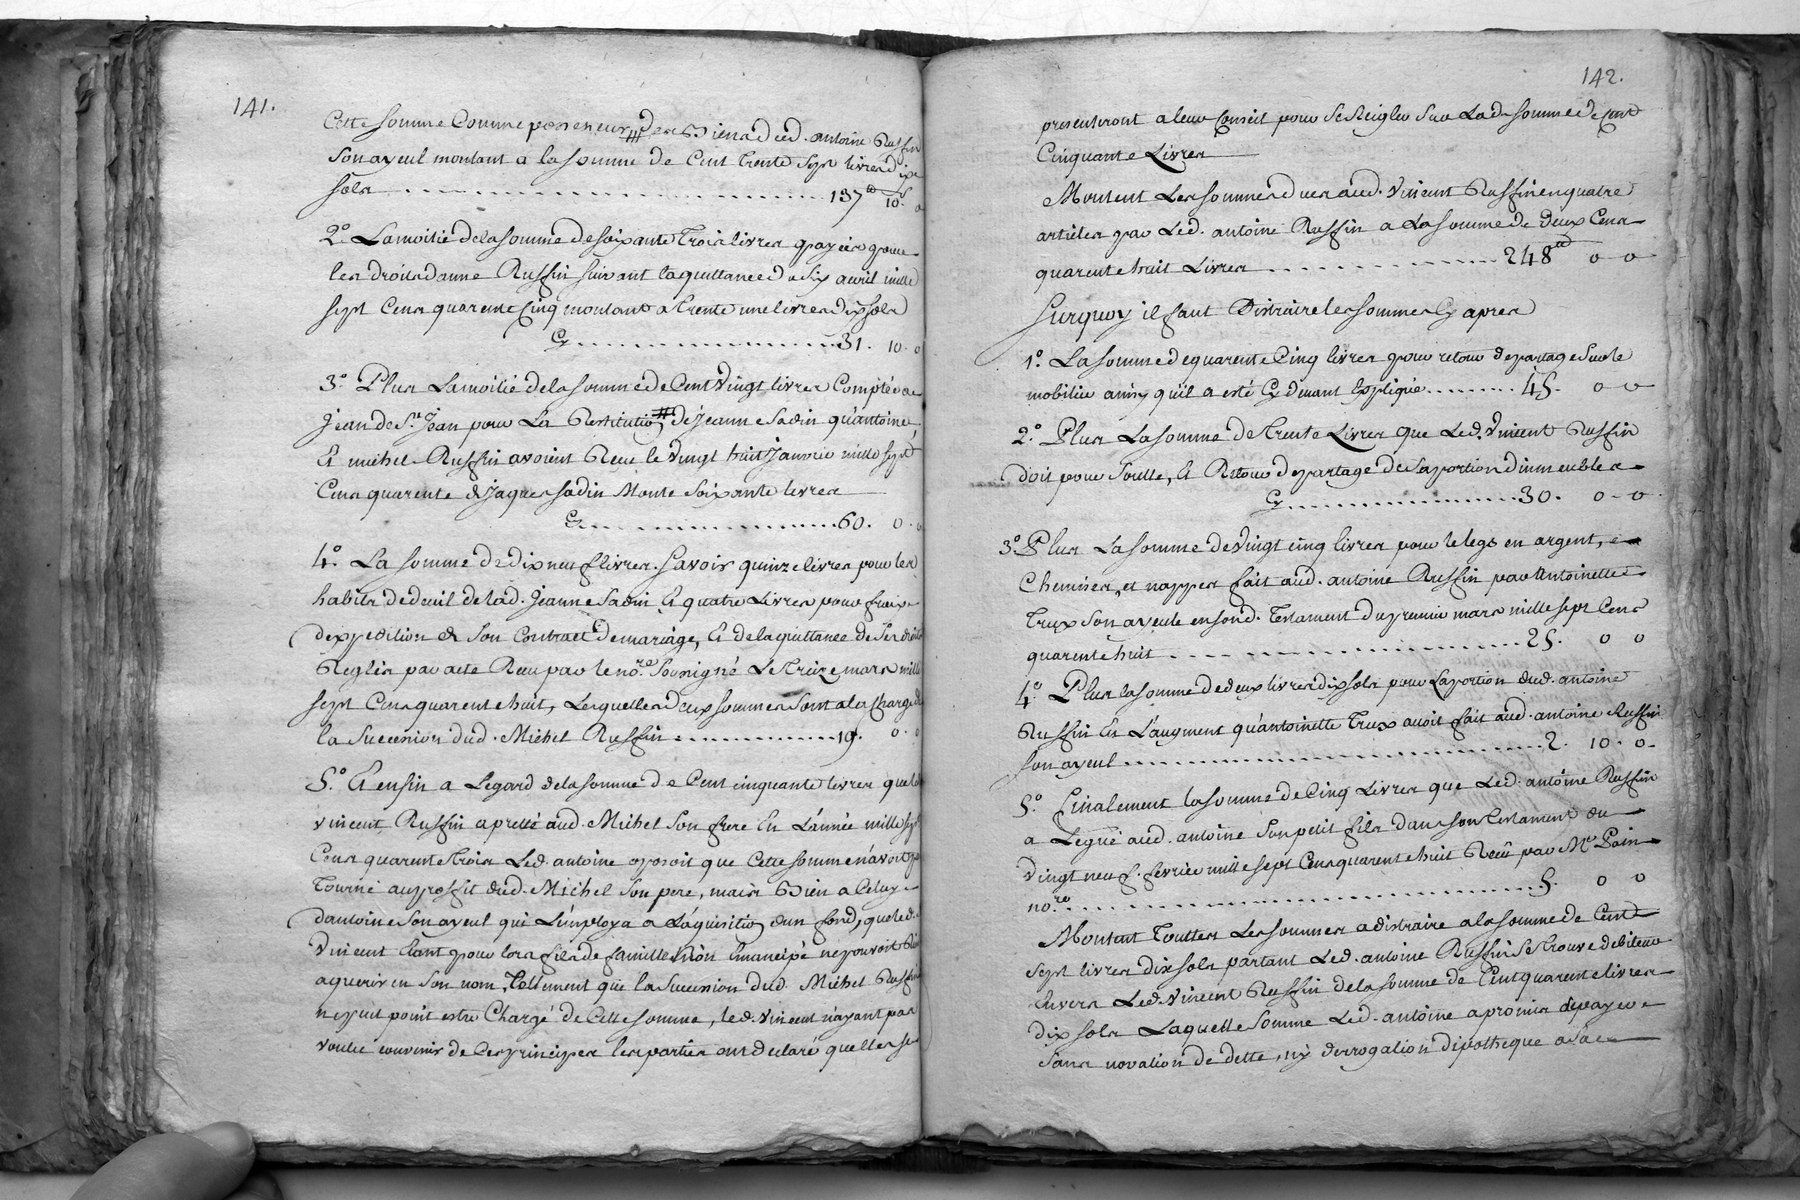 141.
Cette somme Comme possesseur des Biens dud. antoine Ruffin
son ayeul montant a la somme de Cent Trente Sept livres dix
sols 137 ₶ 10 s. 0
2.° La moitié de la somme de soixante Trois livres payées pour
les droits danne Ruffin suivant la quittance du six avril mille
sept Cens quarente Cinq montant a trente une livres dix sols
Cy 31. 10. 0
3.° Plus La moitié de la somme de Cent Vingt livres Comptée a
Jean de S.t Jean pour La Restitution de Jeanne Sadin qu'antoine,
Et michel Ruffin avoient Reçu le Vingt huit Janvier mille sept
Cens quarente de Jaques Sadin Monte soixante livres
Cy 60. 0. 0
4.° La somme de dix neuf livres. Savoir quinze livres pour les
habits de deuil de lad. Jeanne Sadin Et quatre Livres pour fraix
d'expedition de son Contract de mariage, Et de la quittance de ses droits
Reglés par acte Recu par le no.re soussigné Le treize mars mille
sept Cens quarente huit, Lesquelles deux sommes sont a la Charge de
la Succession dud. Michel Ruffin 19. 0. 0
5.° Et enfin a Legard de la somme de Cent cinquante livres que led.
vincent Ruffin a pretté aud. Michel son frere En L'année mille sept
Cens quarente trois Led. antoine oposoit que Cette somme n'avoit pas
Tourné au proffit dud. Michel son pere, mais Bien a Celuy
dantoine son ayeul qui L'employa a L'aquisition dun fond, que led.
Vincent Etant pour lors fils de famille non Emancipé ne pouvoit Rien
aquerir en son nom, Tellement que la Succession dud. Michel Ruffin
ne peut point estre Chargé de Cette somme, led. vincent n'ayant pas
voulu convenir de Ces principes les parties ont declaré quelles se
142.
presenteront a leur Conseil pour se Reigler sur Lad. somme de Cent
Cinquante Livres
Montent Les sommes dues aud. Vincent Ruffin en quatre
articles par Led. antoine Ruffin a La somme de Deux Cens
quarente huit Livres 248 ₶ 0 0
Surquoy il faut Distraire les sommes Cy apres
1.° La somme de quarente Cinq livres pour retour de partage sur le
mobilier ainsy qu'il a esté Cy devant Expliqué 45. 0 0
2.° Plus La somme de Trente Livres que Led. Vincent Ruffin
doit pour soulte, Et Retour de partage de sa portion d'immeubles
Cy 30. 0 0
3.° Plus La somme de Vingt cinq livres pour le legs en argent,
Chemises, et nappes fait aud. antoine Ruffin par Antoinette
Trux son ayeule en sond. Testament du premier mars mille sept Cens
quarente huit 25. 0 0
4.° Plus la somme de deux livres dix sols pour La portion dud. antoine
Ruffin En L'augment qu'antoinette Trux avoit fait aud. antoine Ruffin
son ayeul 2. 10. 0
5.° Finalement la somme de Cinq Livres que Led. antoine Ruffin
a Legué aud. antoine son petit fils dans son testament du
Vingt neuf fevrier mille sept Cens quarente huit Reçu par M.e Pain
no.re 5. 0 0
Montent Toutes Les sommes a distraire a la somme de Cent
sept livres dix sols partant Led. antoine Ruffin se trouve debiteur
Envers Led. Vincent Ruffin de la somme de Cent quarente livres
dix sols Laquelle somme Led. antoine a promis de payer
sans novation de dette, ny derrogation d'ipotheque